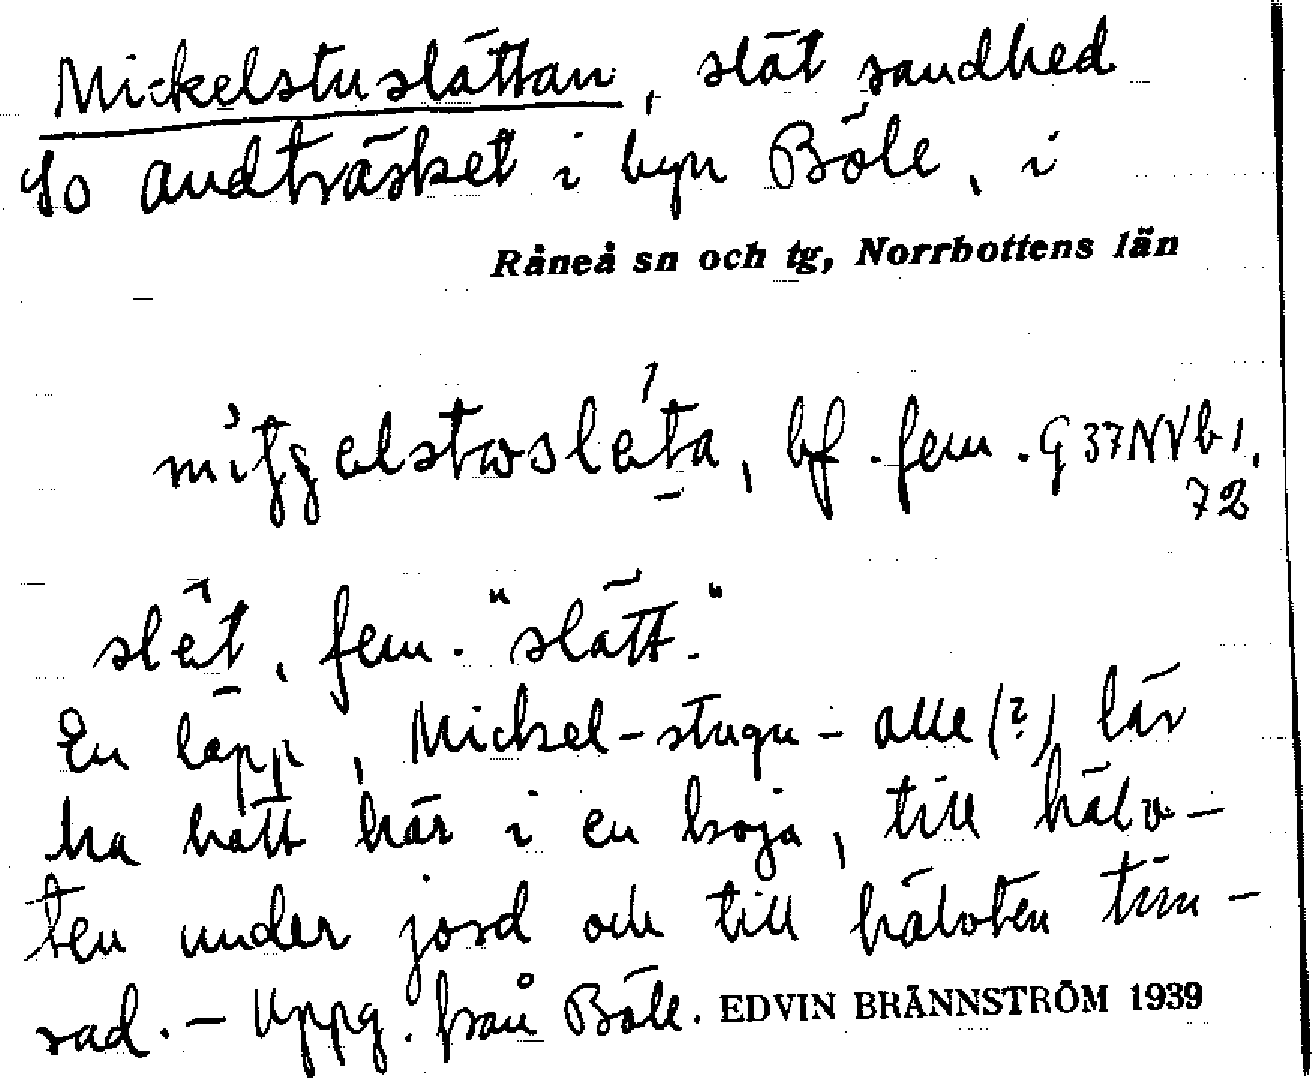 Mickelstuslättan, slät sandhed
So Andträsket i byn Böle, i
Råneå sn och tg, Norrbottens län
bf. fem. G 37 NVb 1,
72
slèt, fem. "slätt."
En lapp, Mickel-stugu-alle(?) lär
ha haft här i en koja, till hälv-
ten under jord och till hälvten tim-
rad. – Uppg. från Böle. EDVIN BRÄNNSTRÖM 1939